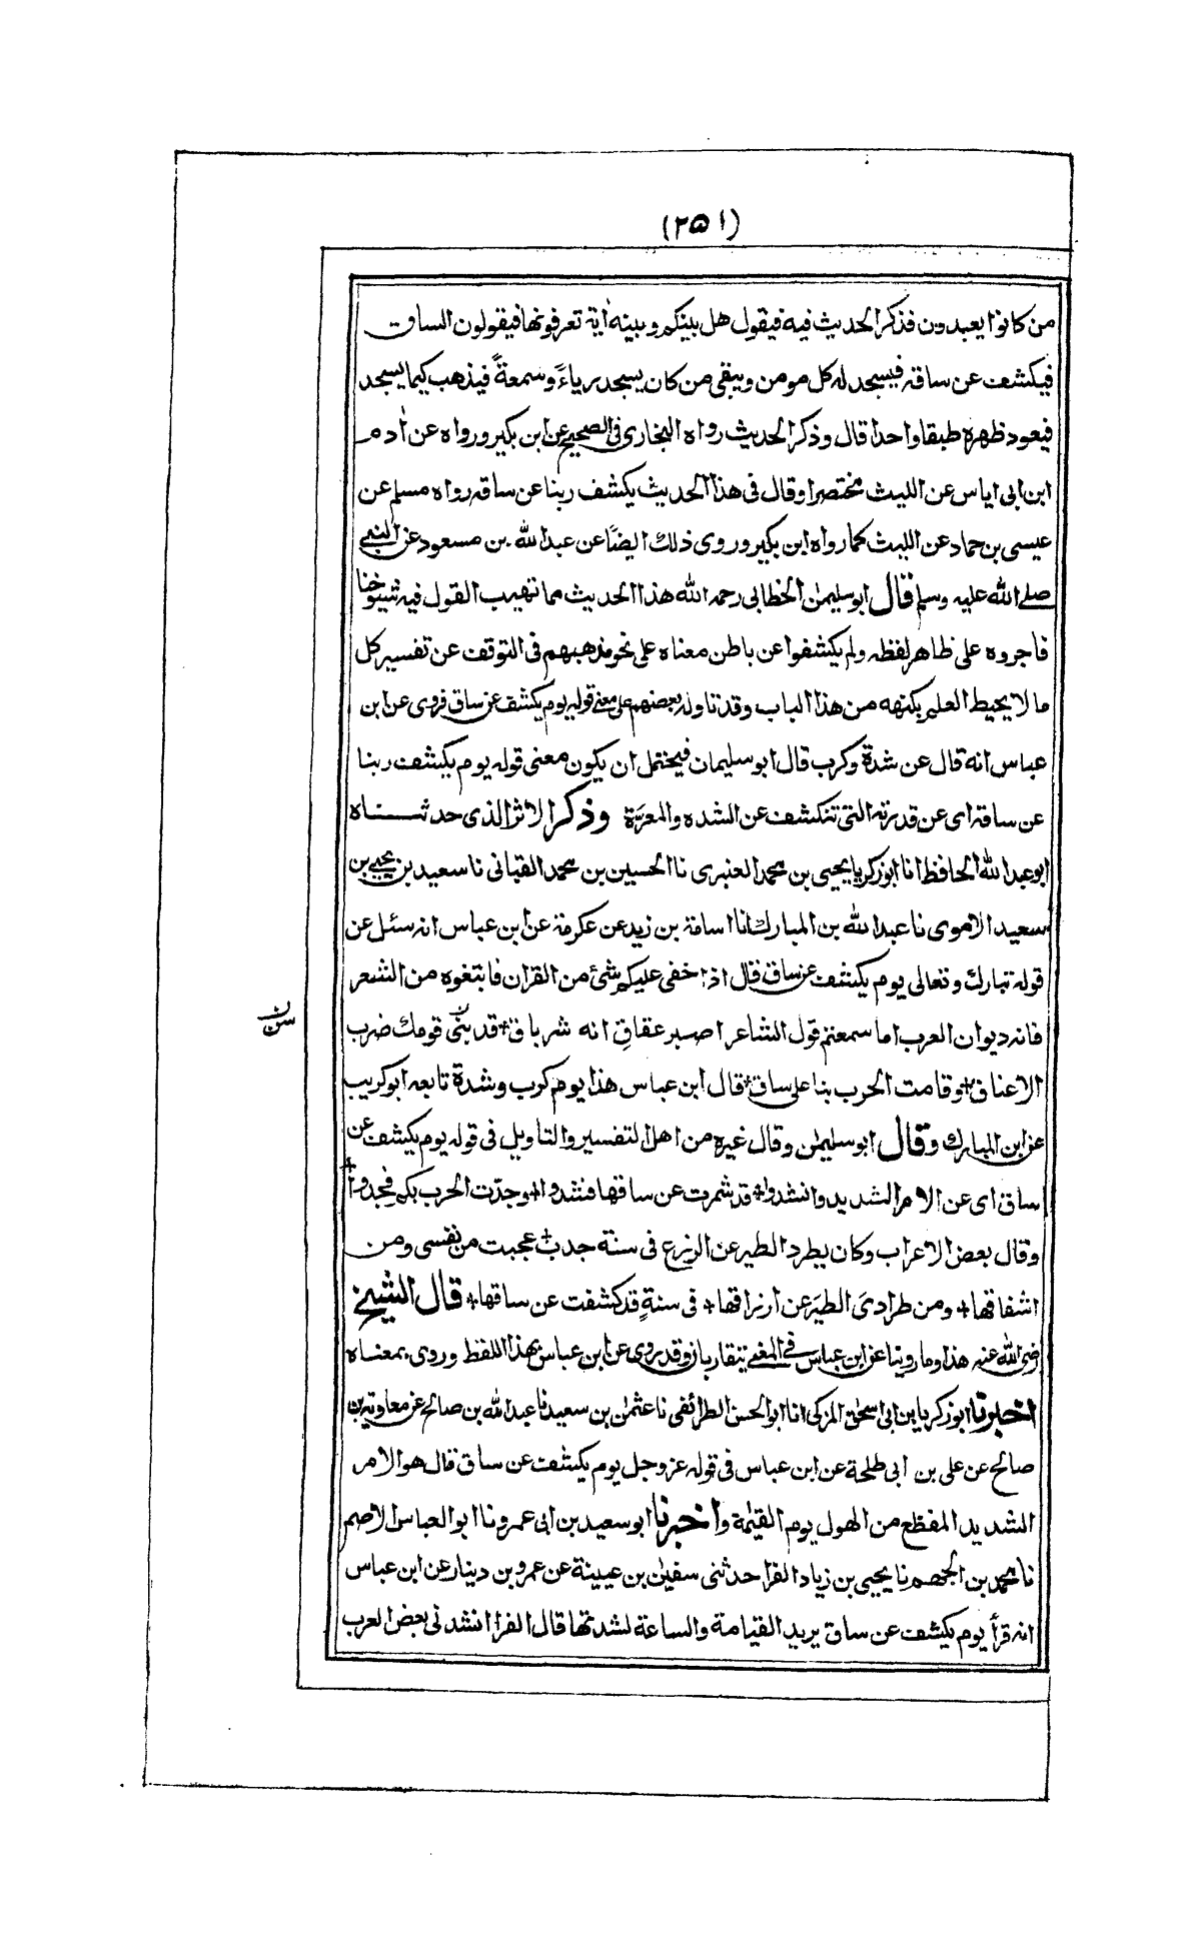 (٢٥١)
من كانوا يعبدون فذكر الحديث فيه فيقول هل بينكم وبينه اٰية تعرفونها فيقولون الساق
فيكشف عن ساقه فيسجد له كل مومن ويبقى من كان يسجد رياءً وسمعةً فيذهب كيما يسجد
فيعود ظهره طبقا واحدا قال وذكر الحديث رواه البخارى فى الصحيح عن ابن بكير ورواه عن اٰدم
ابن ابى اياس عن الليث مختصرا وقال فى هذا الحديث يكشف ربنا عن ساقه رواه مسلم عن
عيسى بن حماد عن الليث كما رواه ابن بكير وروى ذلك ايضًا عن عبد الله بن مسعود عن النبي
صلے الله عليه وسلم قال ابو سليمٰن الخطابى رحمه الله هذا الحديث مما تهيب القول فيه شيوخنا
فاجروه على ظاهر لفظه ولم يكشفوا عن باطن معناه على نحو مذهبهم فى التوقف عن تفسير كل
ما لا يحيط العلم بكنهه من هذا الباب وقد تاوله بعضهم على معنے قوله يوم يكشف عن ساق فروى عن ابن
عباس انه قال عن شدة وكرب قال ابو سليمان فيحتمل ان يكون معنى قوله يوم يكشف ربنا
عن ساقه اى عن قدرته التى تنكشف عن الشده والمعرّة وذكر الاثر الذى حدثناه
ابو عبد الله الحافظ انا ابو زكريا يحيى بن محمد العنبرى نا الحسين بن محمد القبانى نا سعيد بن يحيے بن
سعيد الاموى نا عبد الله بن المبارك انا اسامة بن زيد عن عكرمة عن ابن عباس انه سئل عن
قوله تبارك وتعالى يوم يكشف عن ساق قال اذا خفى عليكم شئ من القران فابتغوه من الشعر
فانه ديوان العرب اما سمعتم قول الشاعر اصبر عقاقِ انه شر باق + قد بنّى قومك ضرب
ن
سنّ
الاعناق + وقامت الحرب بنا على ساق + قال ابن عباس هذا يوم كرب وشدة تابعه ابو كريب
عن ابن المبارك وقال ابو سليمٰن وقال غيره من اهل التفسير والتاويل فى قوله يوم يكشف عن
ساق اى عن الامر الشديد وانشدوا + قد شمرت عن ساقها فشدوا + وجدّت الحرب بكم فجدوا +
وقال بعض الاعراب وكان يطرد الطير عن الزرع فى سنة جدب + عجبت من نفسى ومن
اشفاقها + ومن طرادىَ الطيرَ عن ارزاقها + فى سنةٍ قد كشفت عن ساقها + قال الشيخ
رضى الله عنه هذا وما روينا عن ابن عباس فى المعنے يتقاربان وقد روى عن ابن عباس بهذا اللفظ وروى بمعناه
اخبرنا ابو زكريا بن ابى اسحٰق المزكى انا ابو الحسن الطرائفى نا عثمٰن بن سعيد نا عبد الله بن صالح عن معاوية بن
صالح عن على بن ابى طلحة عن ابن عباس فى قوله عز وجل يوم يكشف عن ساق قال هو الامر
الشديد المفظع من الهول يوم القيٰمة واخبرنا ابو سعيد بن ابى عمرو نا ابو العباس الاصم
نا محمد بن الجهم نا يحيى بن زياد الفرا حدثنى سفيٰن بن عيينة عن عمرو بن دينار عن ابن عباس
انه قرأ يوم يكشف عن ساق يريد القيامة والساعة لشدتها قال الفرا انشدنى بعض العرب